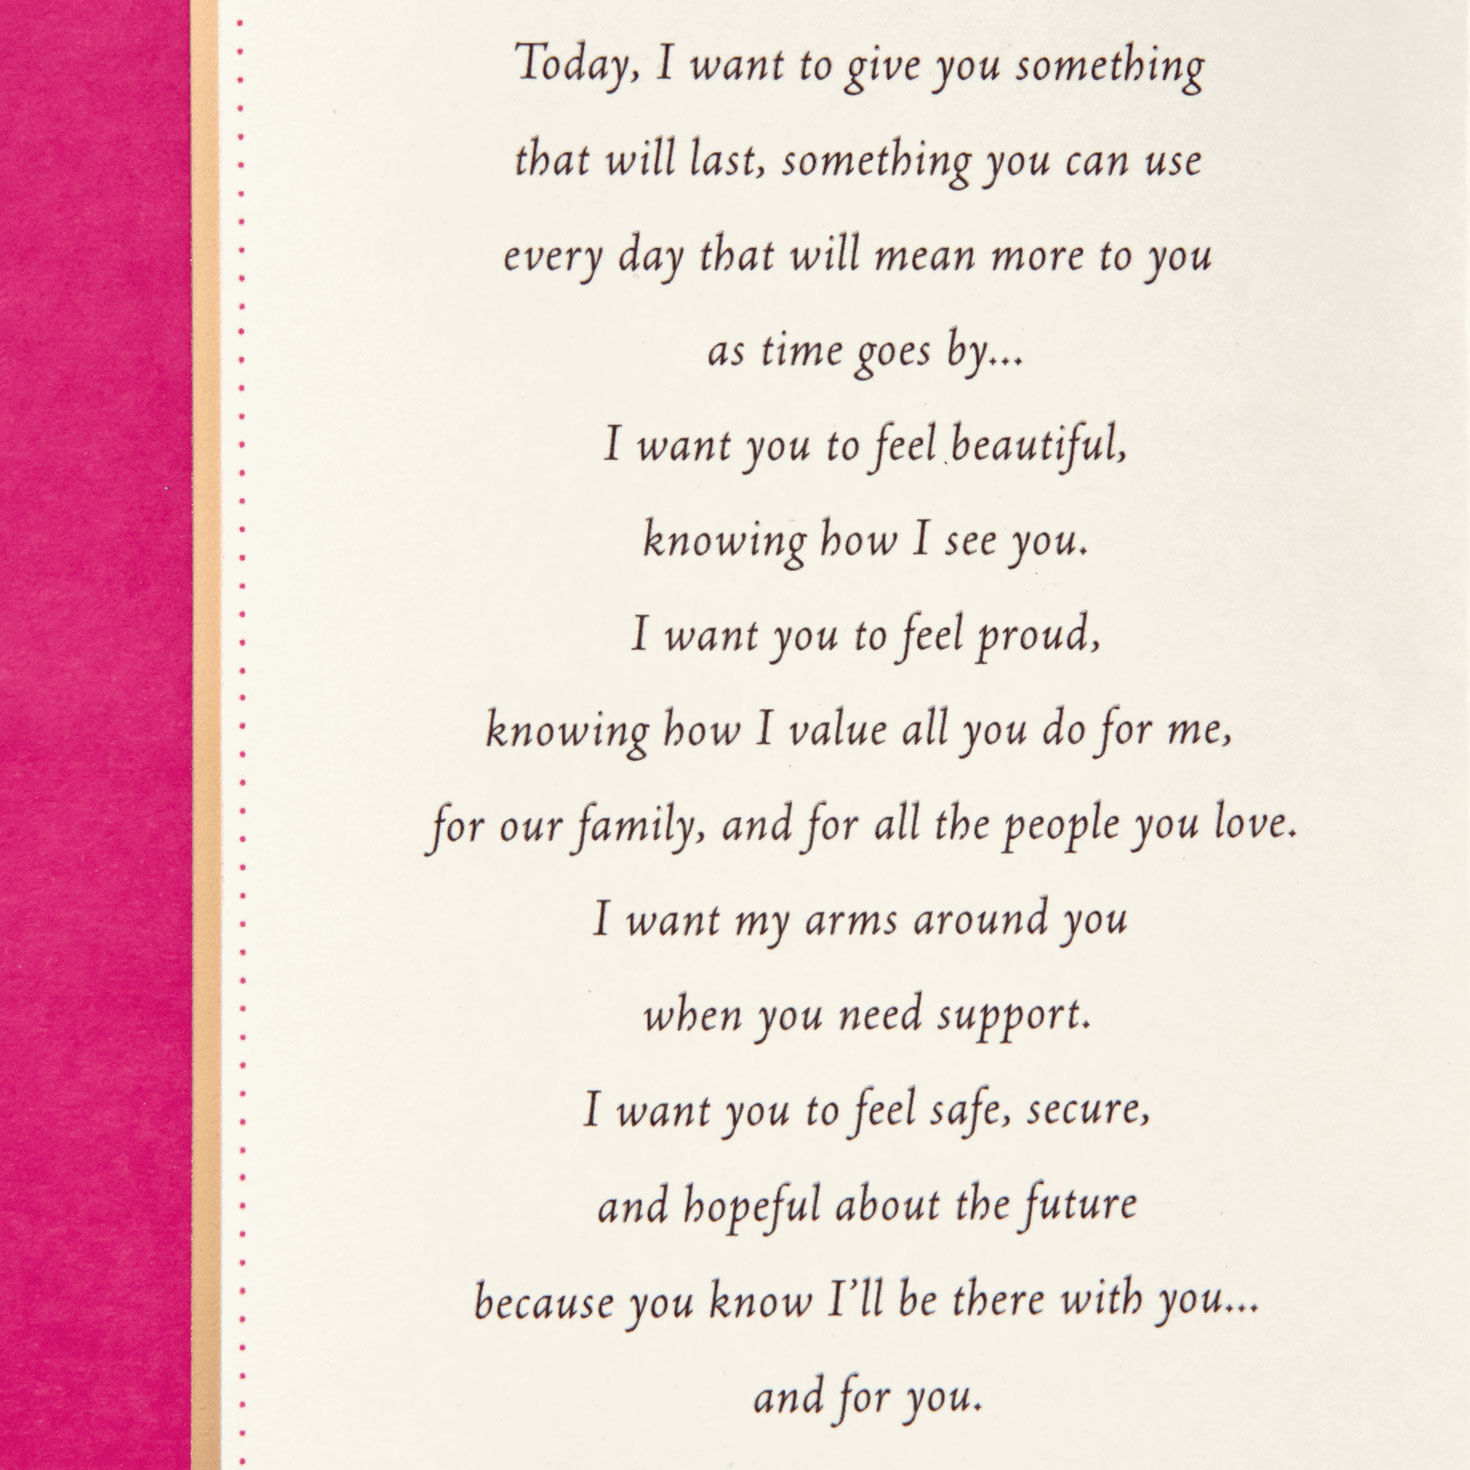 Today, I want to give you something
that will last, something you can use
every day that will mean more to you
as time goes by...
I want you to feel beautiful,
knowing how I see you.
I want you to feel proud,
knowing how I value all you do for me,
for our family, and for all the people you love.
I want my arms around you
when you need support.
I want you to feel safe, secure,
and hopeful about the future
because you know I'll be there with you...
and for you.